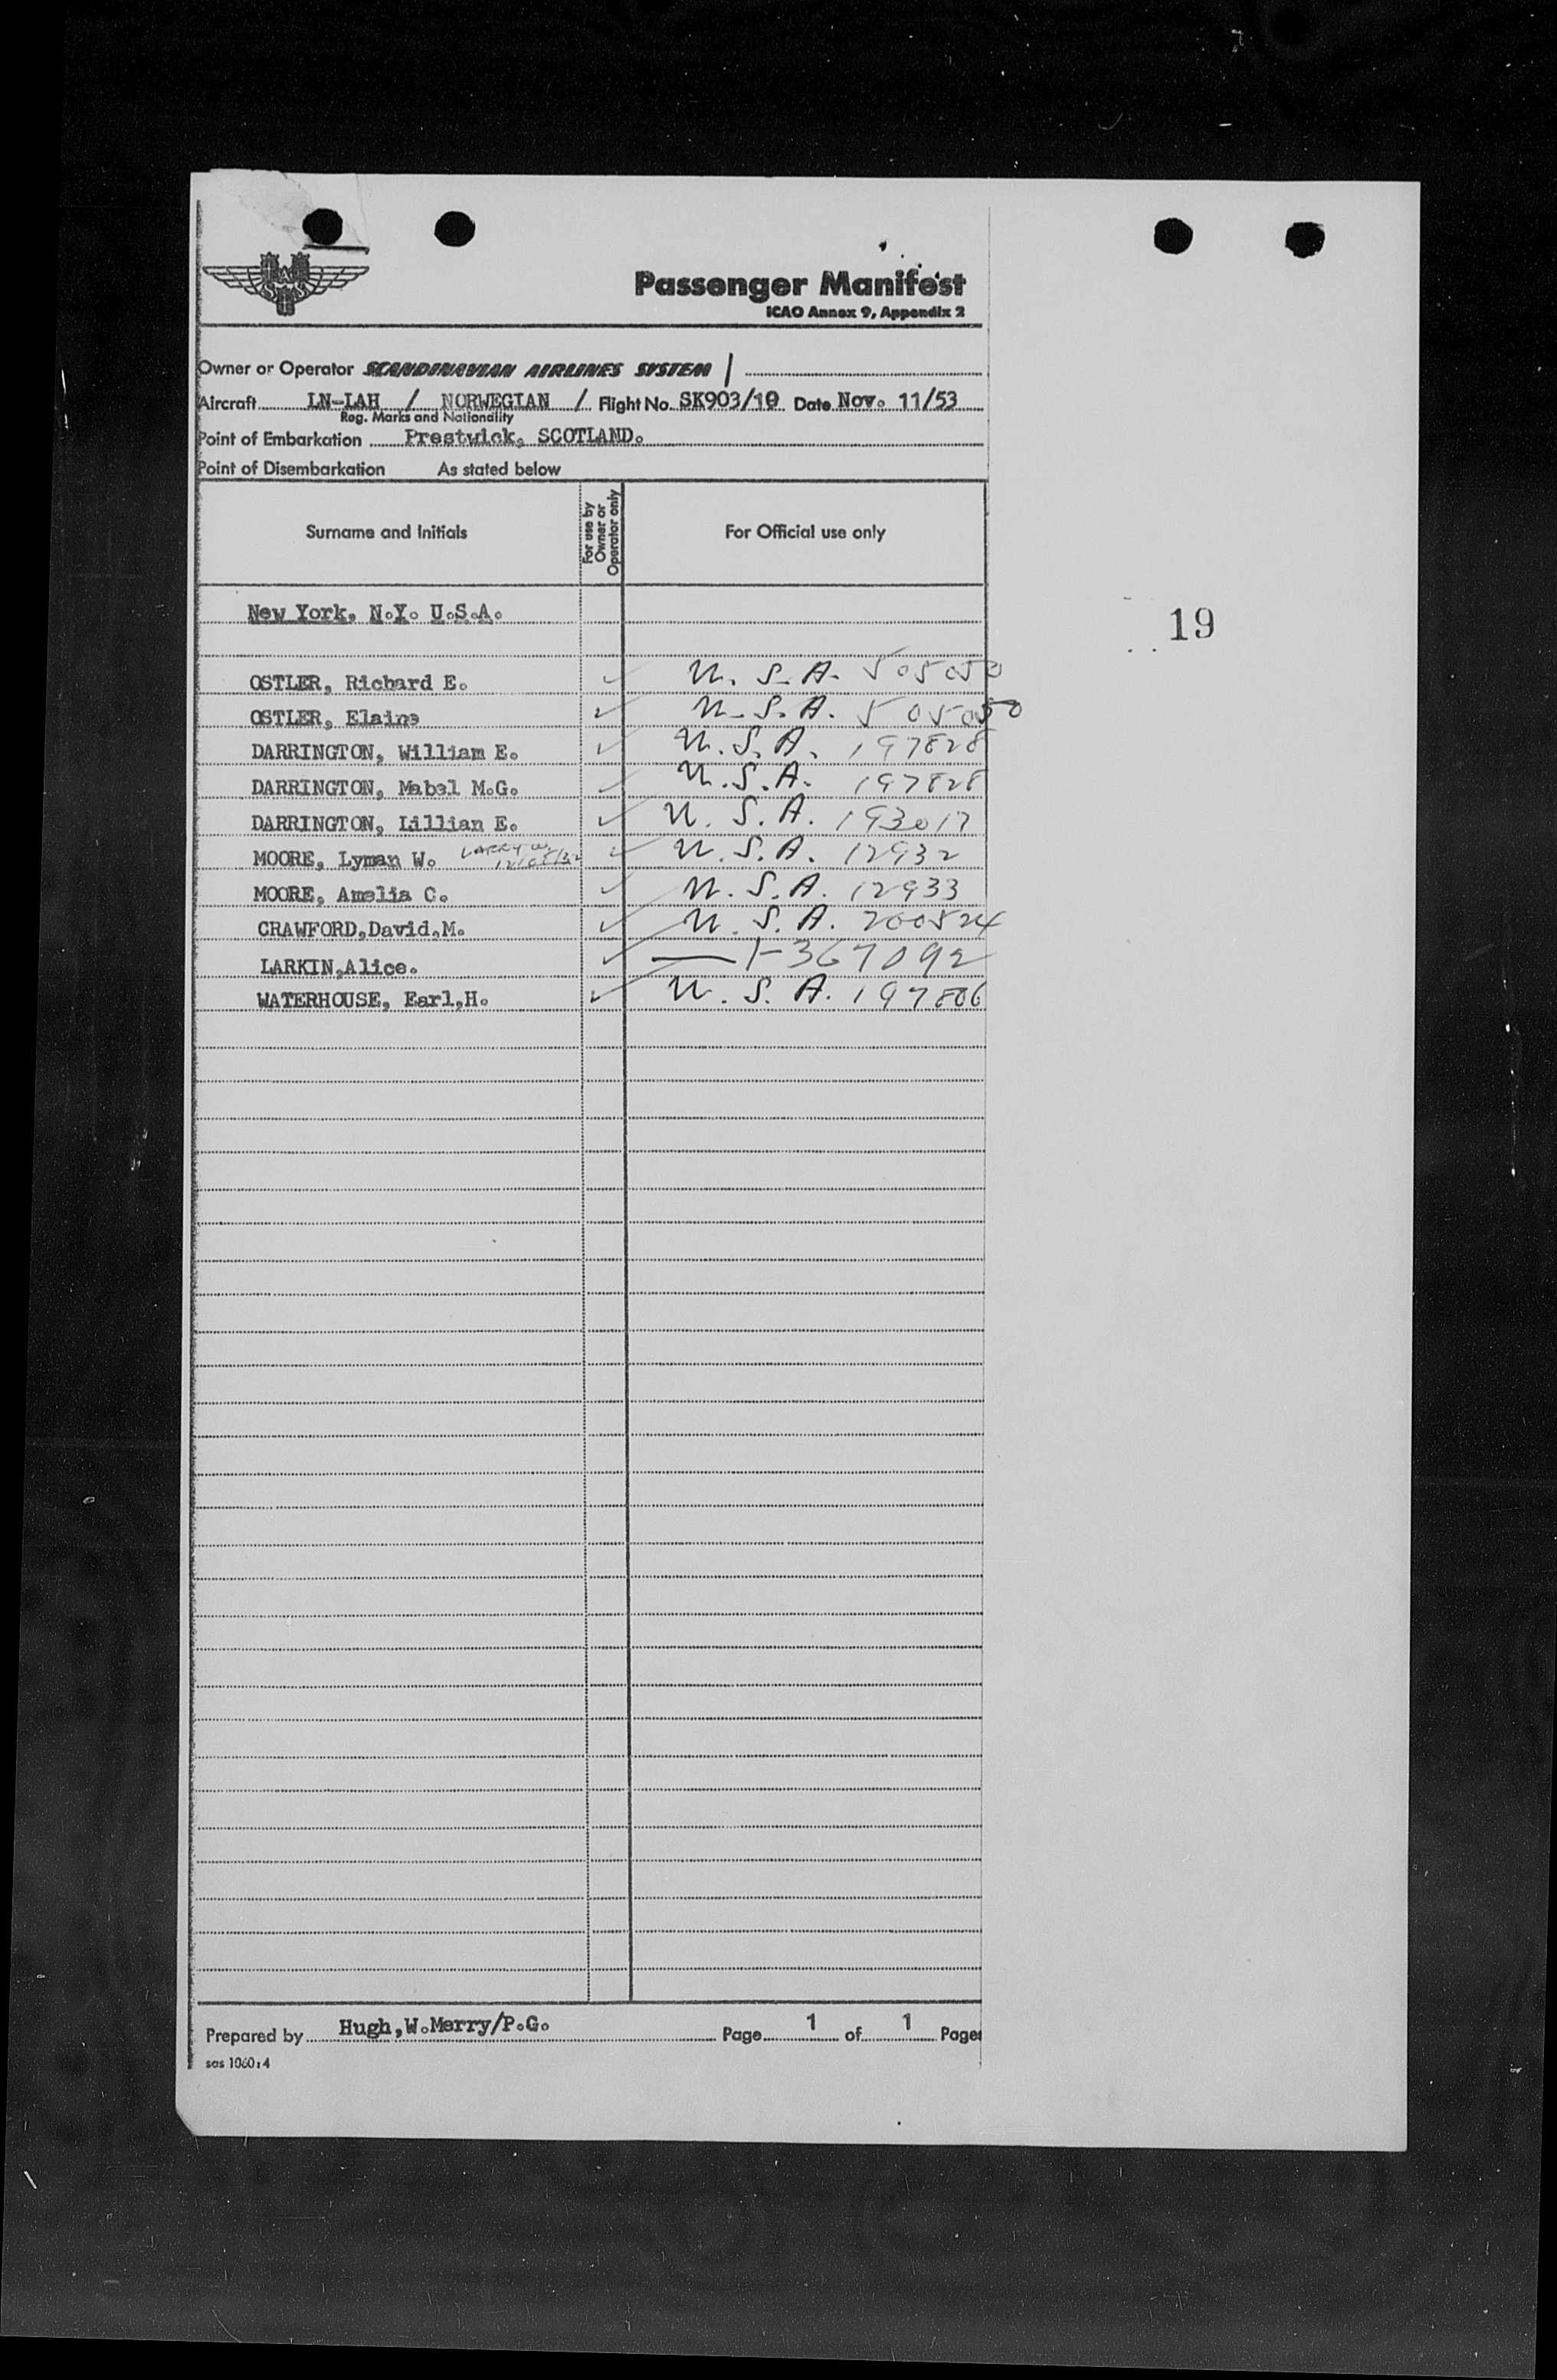 Passenger Manifest
ICAO Annex 9, Appendix 2
Owner or Operator SCANDINAVIAN AIRLINES SYSTEM
Aircraft LN-LAH / NORWEGIAN / Flight No. SK903/10 Date Nov. 11/53
Reg. Marks and Nationality
Point of Embarkation Prestwick, SCOTLAND.
Point of Disembarkation As stated below
Surname and Initials For use by Owner or Operator only For Official use only
New York, N.Y. U.S.A.
19
OSTLER, Richard E. ✓ U.S.A. 505050
OSTLER, Elaine ✓ U.S.A. 505050
DARRINGTON, William E. ✓ U.S.A. 197828
DARRINGTON, Mabel M.G. ✓ U.S.A. 197828
DARRINGTON, Lillian E. ✓ U.S.A. 193017
MOORE, Lyman W. LARRY W. ✓ U.S.A. 12932
MOORE, Amelia C. ✓ U.S.A. 12933
CRAWFORD,David,M. ✓ U.S.A. 200524
LARKIN,Alice. ✓ — 1-367092
WATERHOUSE, Earl,H. ✓ U.S.A. 197806
Prepared by Hugh,W.Merry/P.G. Page 1 of 1 Pages
sas 1060:4